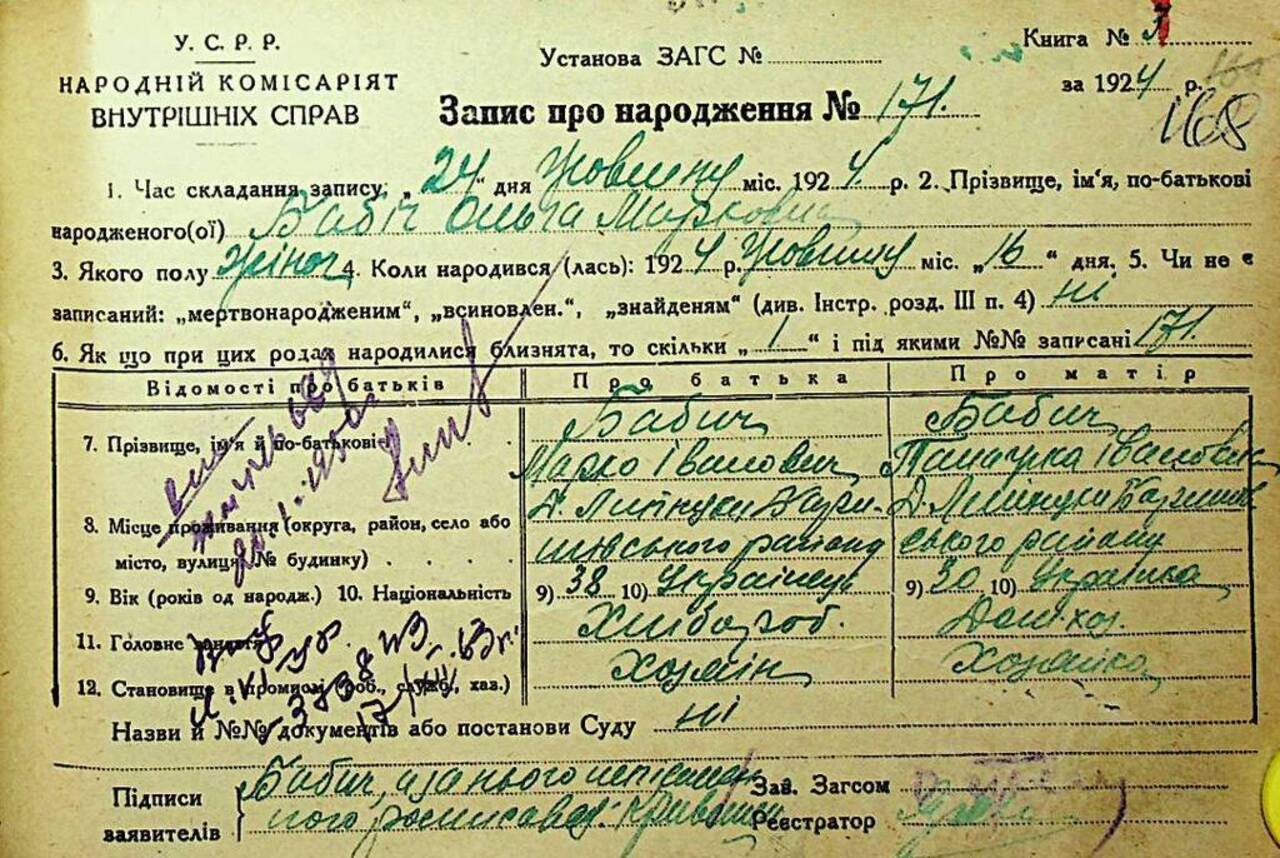 У. С. Р. Р.
НАРОДНІЙ КОМІСАРІЯТ
ВНУТРІШНІХ СПРАВ
Установа ЗАГС №
Книга № 3
за 1924 р.
168
Запис про народження № 171.
1. Час складання запису: „24“ дня Жовтну міс. 1924. р. 2. Прізвище, ім'я, по-батькові
народженого(ої) Бабіч Ольга Марковна
3. Якого полу Жіноч 4. Коли народився (лась): 1924 р. Жовтну міс. „16“ дня. 5. Чи не є
записаний: „мертвонародженим“, „всиновлен.“, „знайденям“ (див. Інстр. розд. III п. 4) ні
6. Як що при цих родах народилися близнята, то скільки „1“ і під якими №№ записані 171.
Відомості про батьків Про батька Про матір
7. Прізвище, ім'я й по-батькові Бабич Бабич
Марко Іванович Івановна
8. Місце проживання (округа, район, село або
місто, вулиця, № будинку)
шівського району ського району
9. Вік (років од народж.) 10. Національність 9) 38 10) Українець 9) 30 10) Українка
11. Головне заняття Хлібороб. Дом.хоз.
12. Становище в промислі (роб., служб., хаз.) Хозяїн Хозяйка
Назви й №№ документів або постанови Суду ні
Підписи
заявителів
Бабич, а за нього неписьмен
ного росписався
Зав. Загсом
Реєстратор